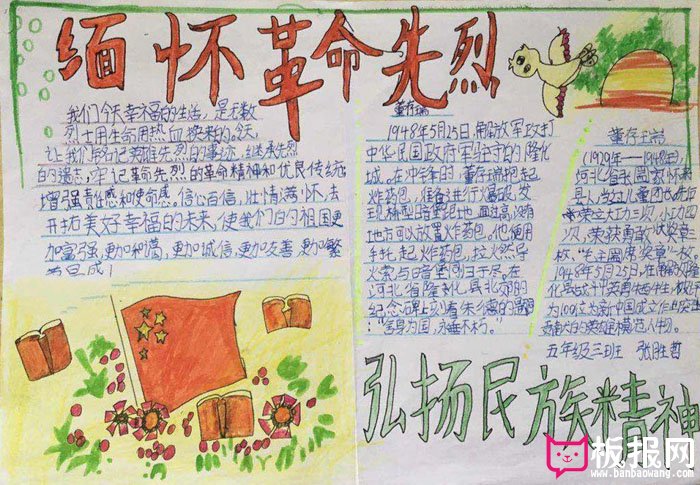 缅怀革命先烈
我们今天幸福的生活，是无数
烈士用生命用热血换来的。今天，
让我们牢记英雄先烈的事迹，继承先烈
的遗志，牢记革命先烈的革命精神和优良传统
增强责任感和使命感。信心百倍，壮情满怀，去
开拓美好幸福的未来，使我们的祖国更
加富强，更加和谐，更加诚信，更加友善，更加繁
荣昌盛！
董存瑞
1948年5月25日，解放军攻打
中华民国政府军驻守的隆化
城。在中午时，董存瑞抱起
炸药包，准备进行爆破，发
现桥型暗堡距地面过高，没有
地方可以放置炸药包，他使用
手托起炸药包，拉燃导
火索与暗堡同归于尽，在
河北省隆化县北部的
纪念碑上刻着朱德的题
“舍身为国，永垂不朽。”
董存瑞
(1929年——1948年)，
河北省
县人，当过儿童团长，先
荣立大功三次，小功四
次，荣获勇敢奖章
枚，毛主席奖章一枚。
1948年5月25日，在解放
化县战斗中英勇牺牲，被评
为100位为新中国成立作出突
贡献的英雄模范人物。
五年级三班 张胜哲
弘扬民族精神
板报网
www.banbaowang.com